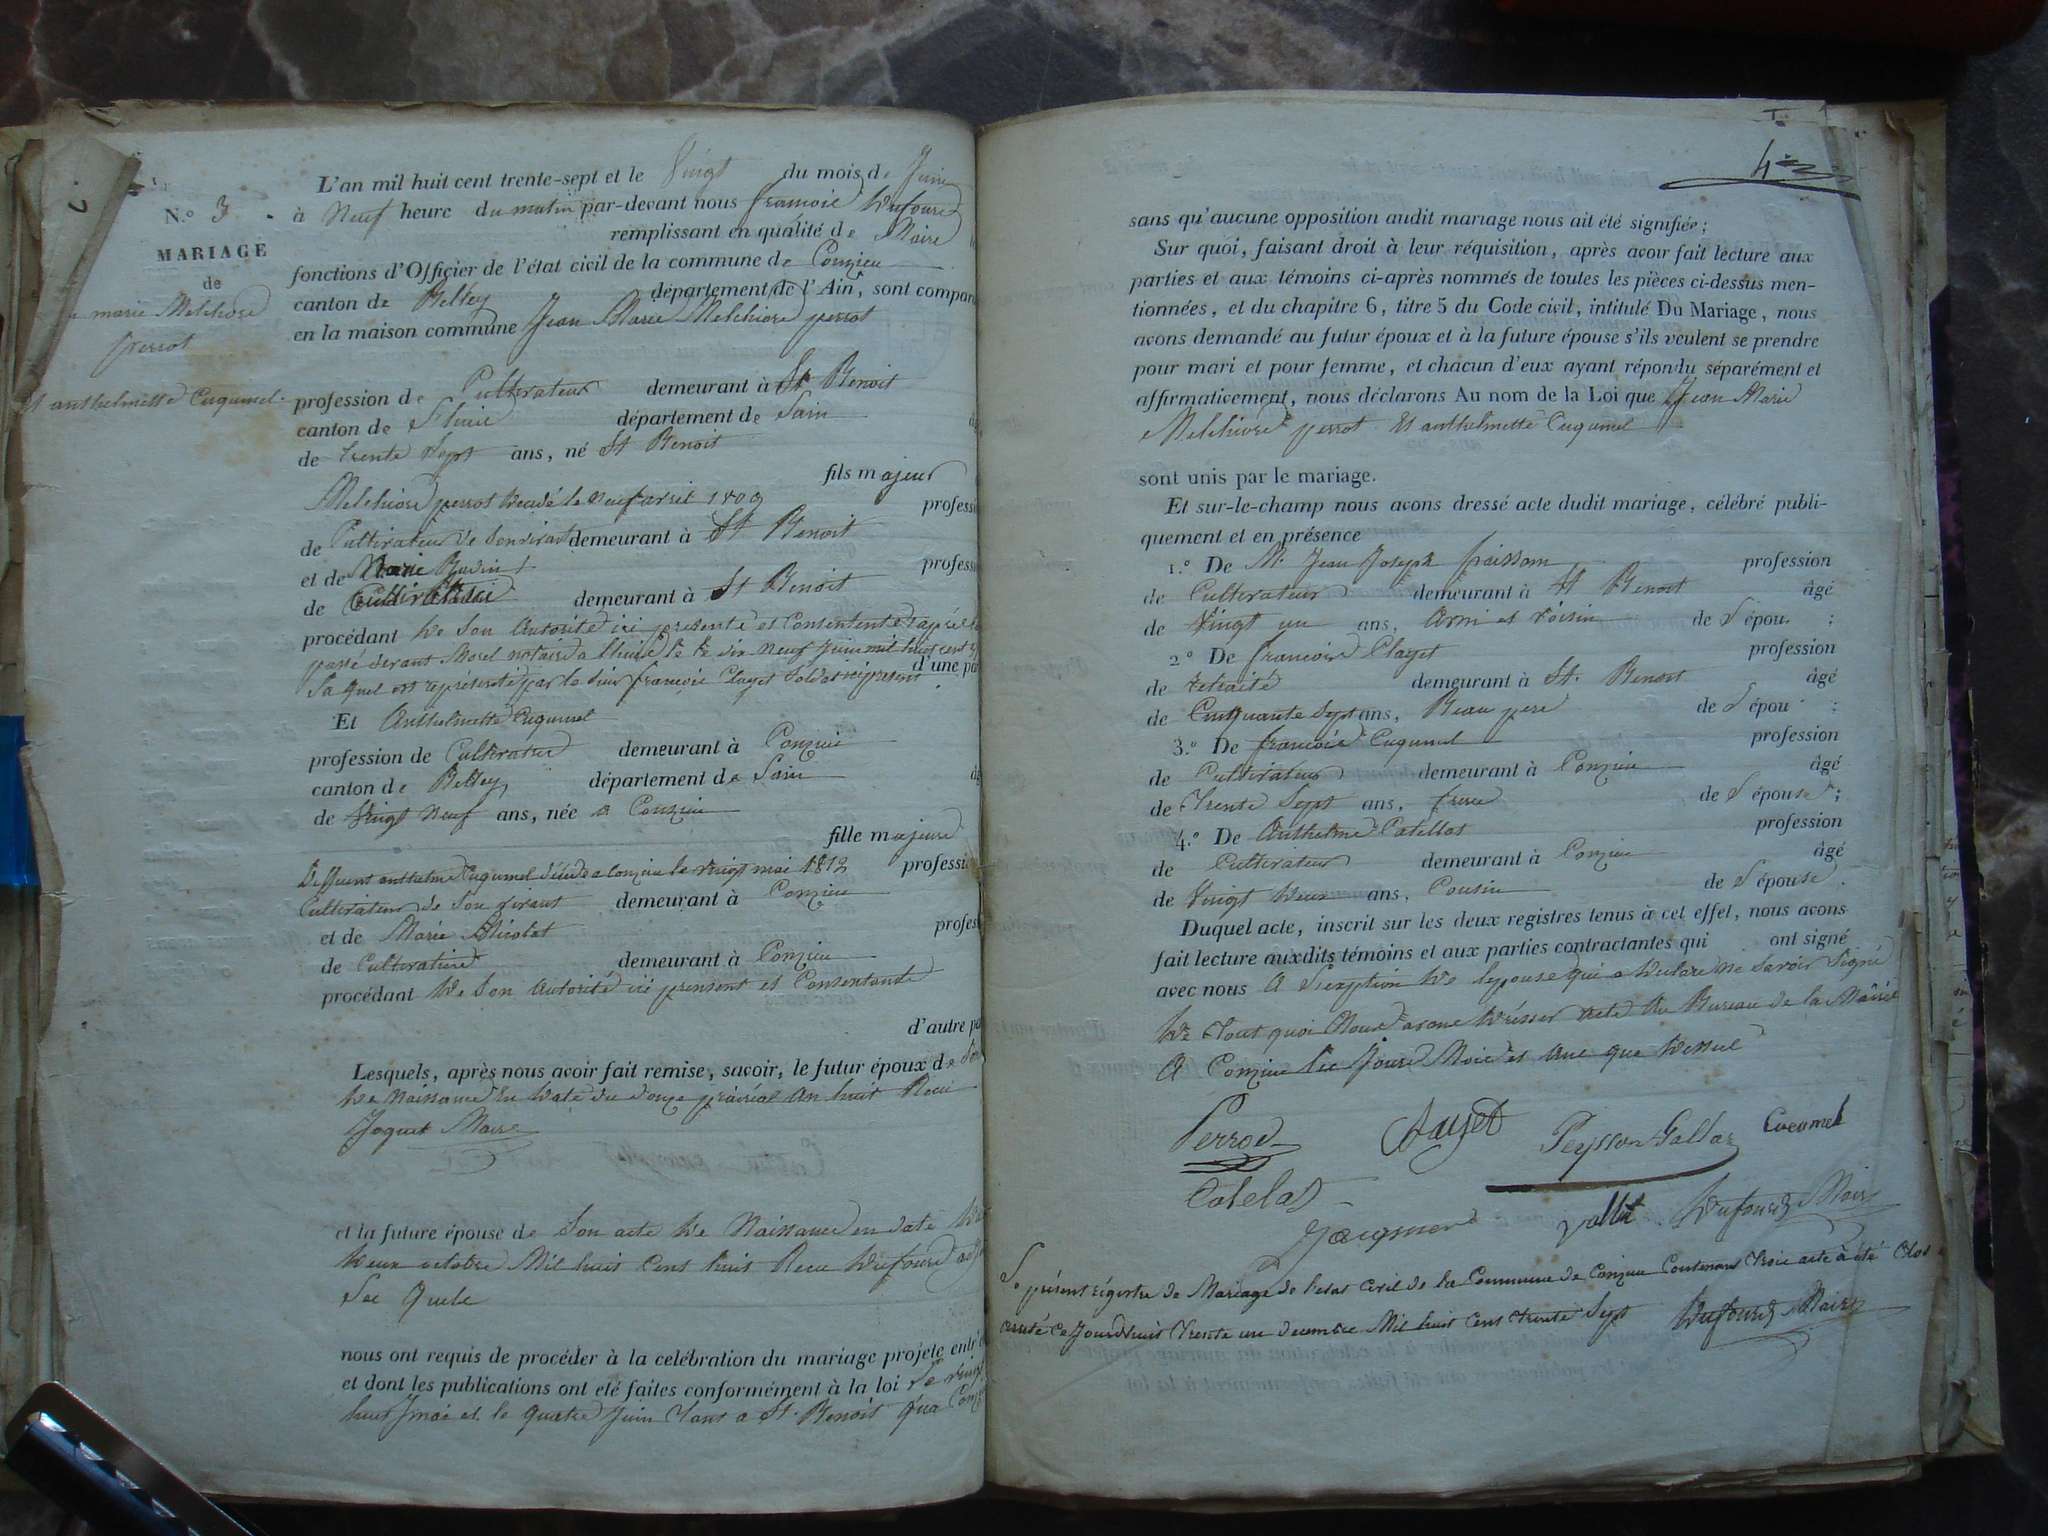 N.o 3
MARIAGE
de
marie Melchiore
perrot
anthelmette Cugumel
L'an mil huit cent trente-sept et le Vingt du mois de Juin
à Neuf heure du matin par-devant nous francois Dufourd
remplissant en qualité de Maire
fonctions d'Officier de l'état civil de la commune de Conzieu
canton de Belley département de l'Ain, sont compar
en la maison commune Jean Marie Melchiore perrot
profession de Cultivateur demeurant à St Benoit
canton de Lhuis département de Lain
de trente Sept ans, né St Benoit
fils majeur
Melchiore perrot décédé le neuf avril 1809
profess
de Cultivateur de Son vivant demeurant à St Benoit
et de Marie Budin
profess
de Cultivatrice demeurant à St Benoit
procédant de Son Autorité ici présente et Consentente
passé devant Morel notaire a Lhuis le dix Neuf Juin mil huit cent
d'une pa
Laquel est représenté par le Sieur francois Clayet Soldat ici présent
Et Anthelmette Cugumel
profession de Cultivatrice demeurant à Conzieu
canton de Belley département de Lain
de Vingt Neuf ans, née a Conzieu
fille majeure
Deffunt anthelme Cugumel décédé a Conzieu le vingt mai 1812 professi
Cultivateur de Son vivant demeurant à Conzieu
et de Marie Nicolet profess
de Cultivatrice demeurant à Conzieu
procédant de Son Autorité ici present et Consentante
d'autre pa
Lesquels, après nous avoir fait remise, savoir, le futur époux de Son
de Naissance En date du douze prairéal An huit Recu
Joquet Maire
et la future épouse de Son acte de Naissance en date du
deux octobre Mil huit Cent huit Recu Dufourd
nous ont requis de procéder à la celébration du mariage projete entr'e
et dont les publications ont eté faites conformément à la loi Le vingt
huit mai et le quatre Juin tant a St. Benoit qu'a Conz
sans qu'aucune opposition audit mariage nous ait été signifiée;
Sur quoi, faisant droit à leur réquisition, après avoir fait lecture aux
parties et aux témoins ci-après nommés de toutes les pièces ci-dessus men-
tionnées, et du chapitre 6, titre 5 du Code civil, intitulé Du Mariage, nous
avons demandé au futur époux et à la future épouse s'ils veulent se prendre
pour mari et pour femme, et chacun d'eux ayant répondu séparément et
affirmativement, nous déclarons Au nom de la Loi que Jean Marie
Melchiore perrot Et anthelmette Cugumel
sont unis par le mariage.
Et sur-le-champ nous avons dressé acte dudit mariage, célébré publi-
quement et en présence
1.o De M. Jean Joseph profession
de Cultivateur demeurant à St Benoit âgé
de Vingt un ans, Ami et voisin de l'épou ;
2o De francois Clayet profession
de retraité demeurant à St. Benoit âgé
de Cinquante Sept ans, Beau pere de l'épou ;
3.o De francois Cugumel profession
de Cultivateur demeurant à Conzieu âgé
de Trente Sept ans, frere de l'épouse ;
4.o De Anthelme Catellat profession
de Cultivateur demeurant à Conzieu âgé
de Vingt deux ans, Cousin de l'épouse.
Duquel acte, inscrit sur les deux registres tenus à cet effet, nous avons
fait lecture auxdits témoins et aux parties contractantes qui ont signé
avec nous A Lexeption de lepouse qui a declaré ne Savoir Signé
de Tout quoi Nous avons dresser acte Au Bureau de la Mairie
A Conzieu les Jours Mois et ans que dessus
Perrod Clayet Peysson Cucumel
Catelat
vallet Dufourd Maire
Le présent régistre de Mariage de l'etat Civil de la Commune de Conzieu Contenant trois acte à été Clos
areté Ce Jourdhuit Trente un decembre Mil huit Cent trente Sept Dufourd Maire